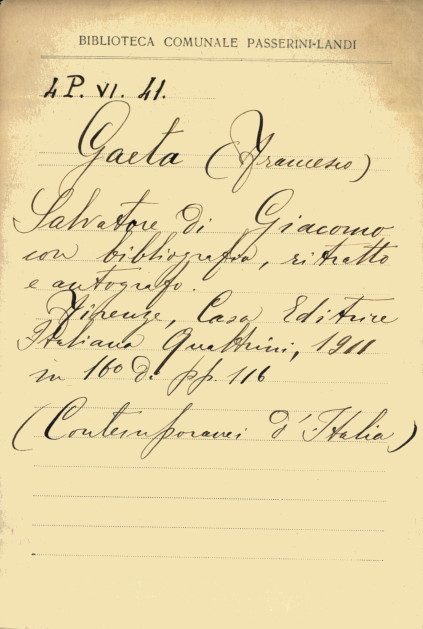 BIBLIOTECA COMUNALE PASSERINI-LANDI
4 P. VI. 41.
Gaeta (Francesco)
Salvatore di Giacomo
con bibliografia, ritratto
e autografo.
Firenze, Casa Editrice
Italiana Quattrini, 1911
in 16º d. pp. 116
(Contemporanei d'Italia)